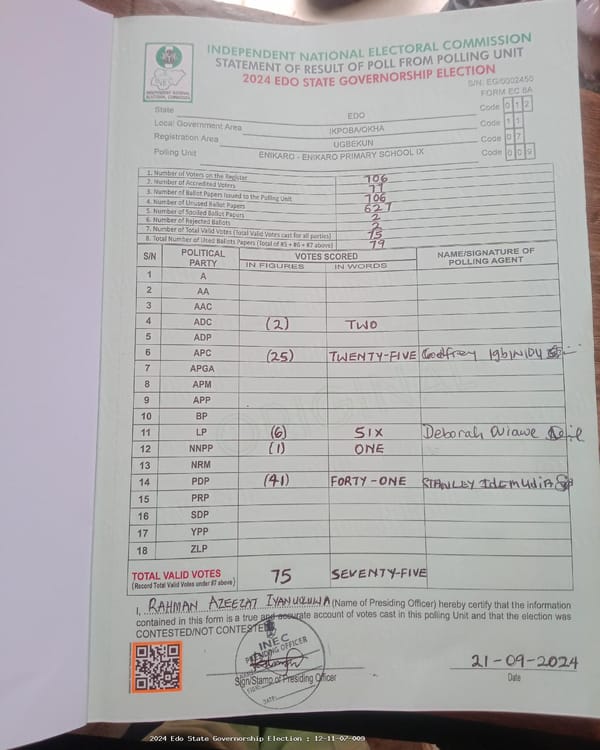 INDEPENDENT NATIONAL ELECTORAL COMMISSION
STATEMENT OF RESULT OF POLL FROM POLLING UNIT
2024 EDO STATE GOVERNORSHIP ELECTION
S/N: EG/0002450
FORM EC 8A
INEC
INDEPENDENT NATIONAL ELECTORAL COMMISSION
State EDO Code 0 1 2
Local Government Area IKPOBA/OKHA Code 1 1
Registration Area UGBEKUN Code 0 7
Polling Unit ENIKARO - ENIKARO PRIMARY SCHOOL IX Code 0 0 9
1. Number of Voters on the Register 706
2. Number of Accredited Voters 77
3. Number of Ballot Papers Issued to the Polling Unit 706
4. Number of Unused Ballot Papers 627
5. Number of Spoiled Ballot Papers 2
6. Number of Rejected Ballots 2
7. Number of Total Valid Votes (Total Valid Votes cast for all parties) 75
8. Total Number of Used Ballots Papers (Total of #5 + #6 + #7 above) 79
S/N POLITICAL PARTY VOTES SCORED NAME/SIGNATURE OF POLLING AGENT
IN FIGURES IN WORDS
1 A
2 AA
3 AAC
4 ADC (2) TWO
5 ADP
6 APC (25) TWENTY-FIVE Godfrey
7 APGA
8 APM
9 APP
10 BP
11 LP (6) SIX Deborah
12 NNPP (1) ONE
13 NRM
14 PDP (41) FORTY-ONE STANLEY IDEMUDIA
15 PRP
16 SDP
17 YPP
18 ZLP
TOTAL VALID VOTES 75 SEVENTY-FIVE
(Record Total Valid Votes under #7 above)
I, RAHMAN AZEEZAT IYANUOLUWA (Name of Presiding Officer) hereby certify that the information
contained in this form is a true and accurate account of votes cast in this polling Unit and that the election was
CONTESTED/NOT CONTESTED
INEC
PRESIDING OFFICER
SIGN
DATE:
21-09-2024
Sign/Stamp of Presiding Officer Date
2024 Edo State Governorship Election : 12-11-07-009